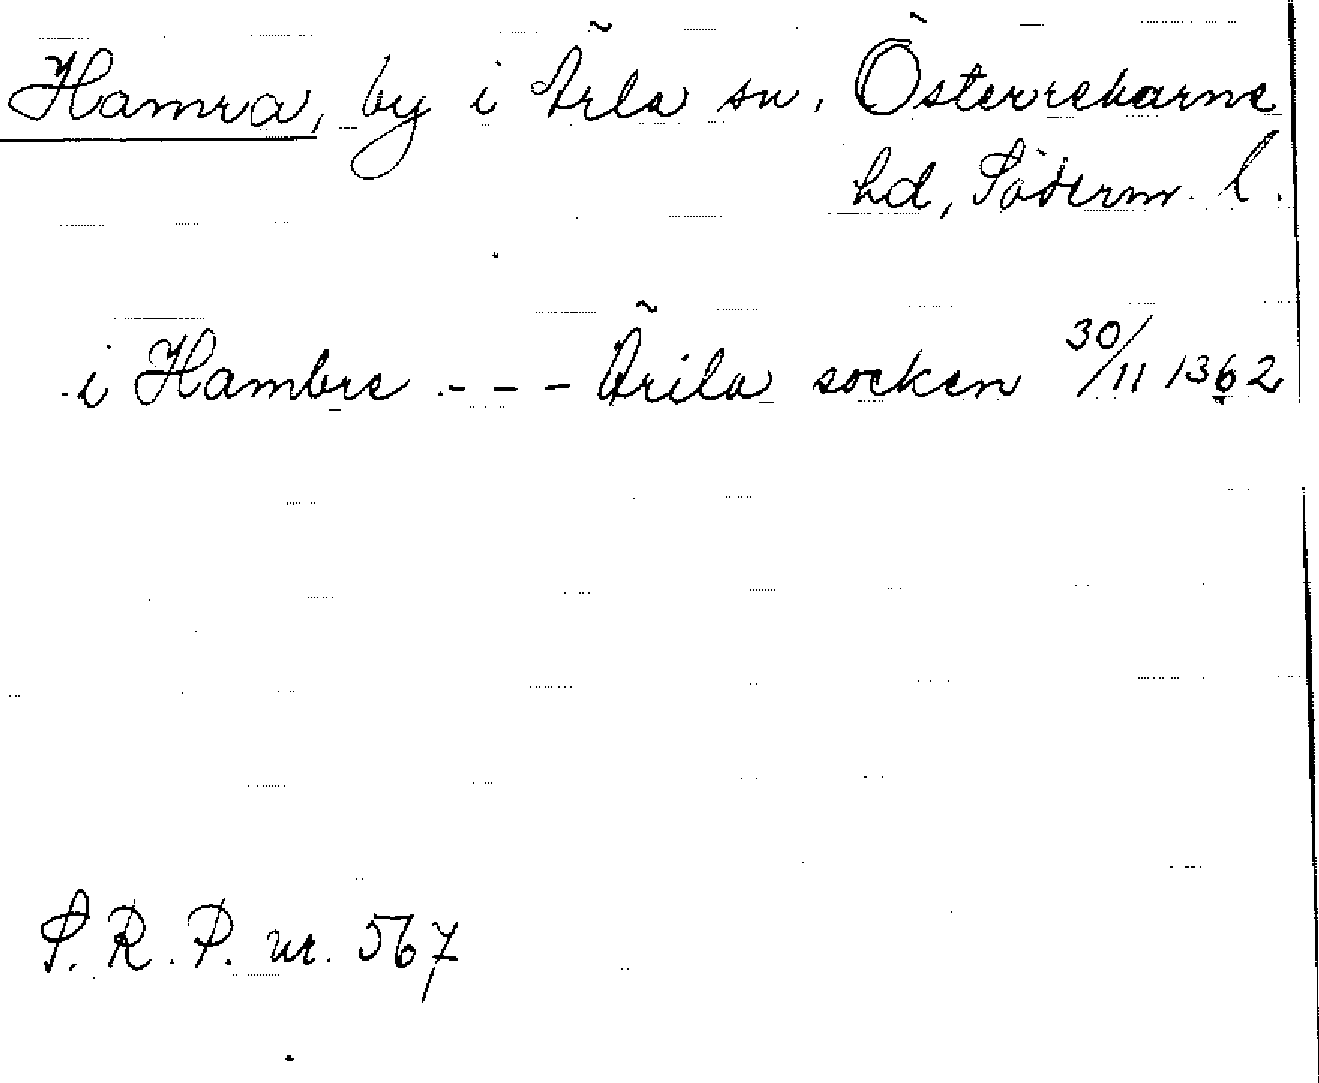 Hamra, by i Ärla sn, Österrekarne
hd, Söderm. l.
i Hambre - - - Ärila socken 30/11 1362
S. R. P. nr. 567